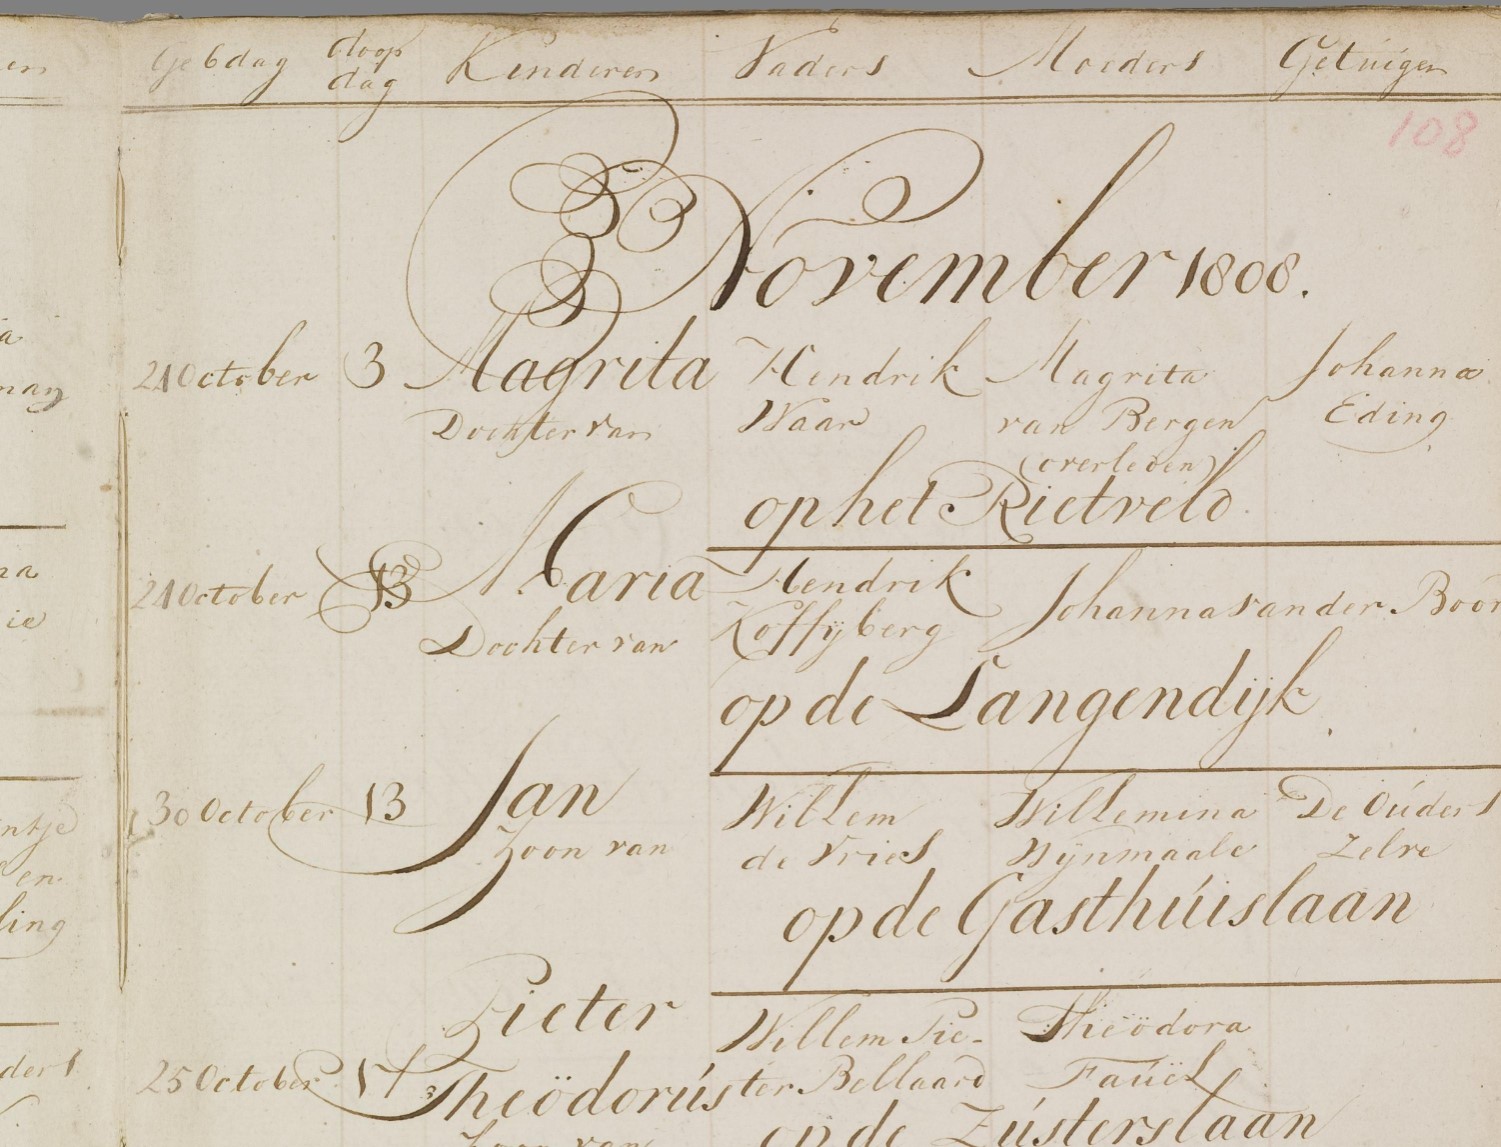 en
Gebdag doop Kinderen Vaders Moeders Getuigen
dag
108
November 1808.
21 October 3 Magrita Hendrik Magrita Johanna
Dochter van Waar van Bergen Eding
(overleden)
op het Rietveld
21 October 13 Maria Hendrik Johanna van der Boon
Dochter van Koffijberg
op de Langendijk
30 October 13 Jan Willem Willemina De Oúders
Zoon van de Vries Wijnmaale Zelve
op de Gasthúislaan
Pieter Willem Pie- Theödora
25 October 17 Theödorús ter Bellaard Faúël
Zoon van op de Zústerslaan